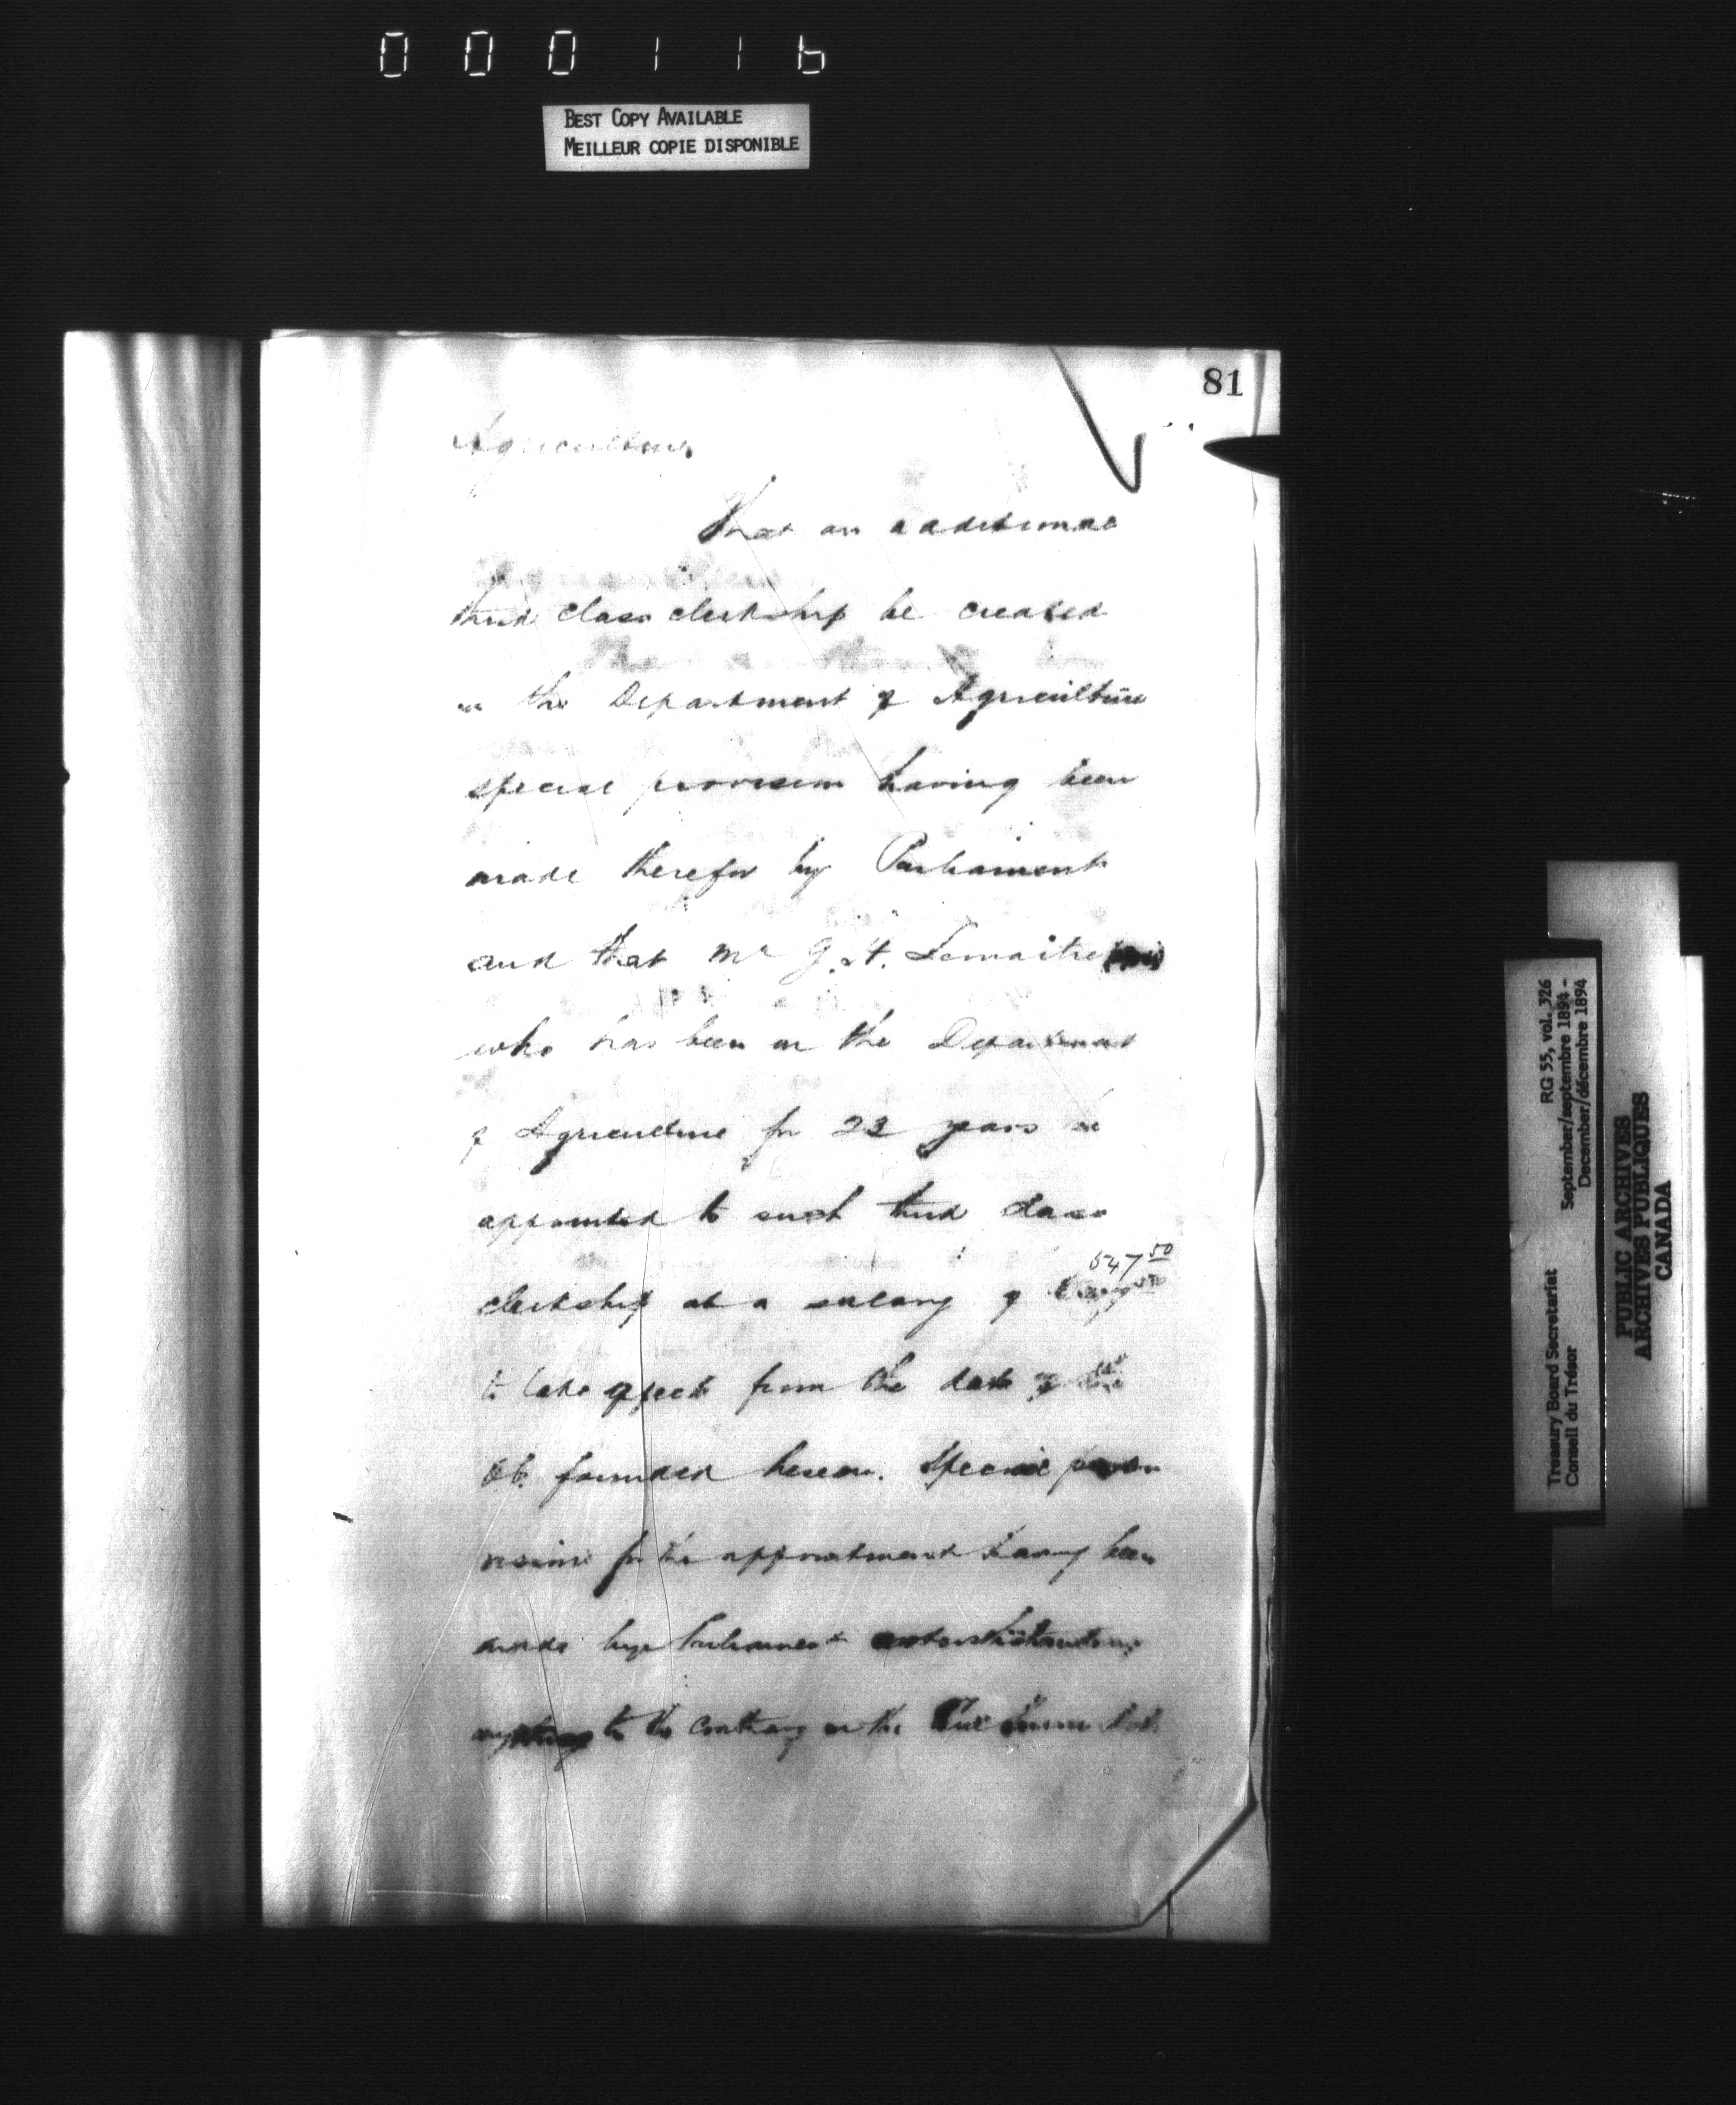 000116
BEST COPY AVAILABLE
MEILLEUR COPIE DISPONIBLE
81
Agriculture
That an additional
third class clerkship be created
in the Department of Agriculture
special provision having been
made therefor by Parliament
and that Mr G. H. Lemaitre
who has been in the Department
of Agriculture for 23 years be
appointed to such third class
547 50
clerkship at a salary of
to take effect from the date of the
O.C. founded hereon. Special pro
vision for the appointment having been
made by Parliament notwithstanding
anything to the contrary in the Civil Service Act
Treasury Board Secretariat RG 55, vol. 326
Conseil du Trésor September/septembre 1894 -
December/décembre 1894
PUBLIC ARCHIVES
ARCHIVES PUBLIQUES
CANADA